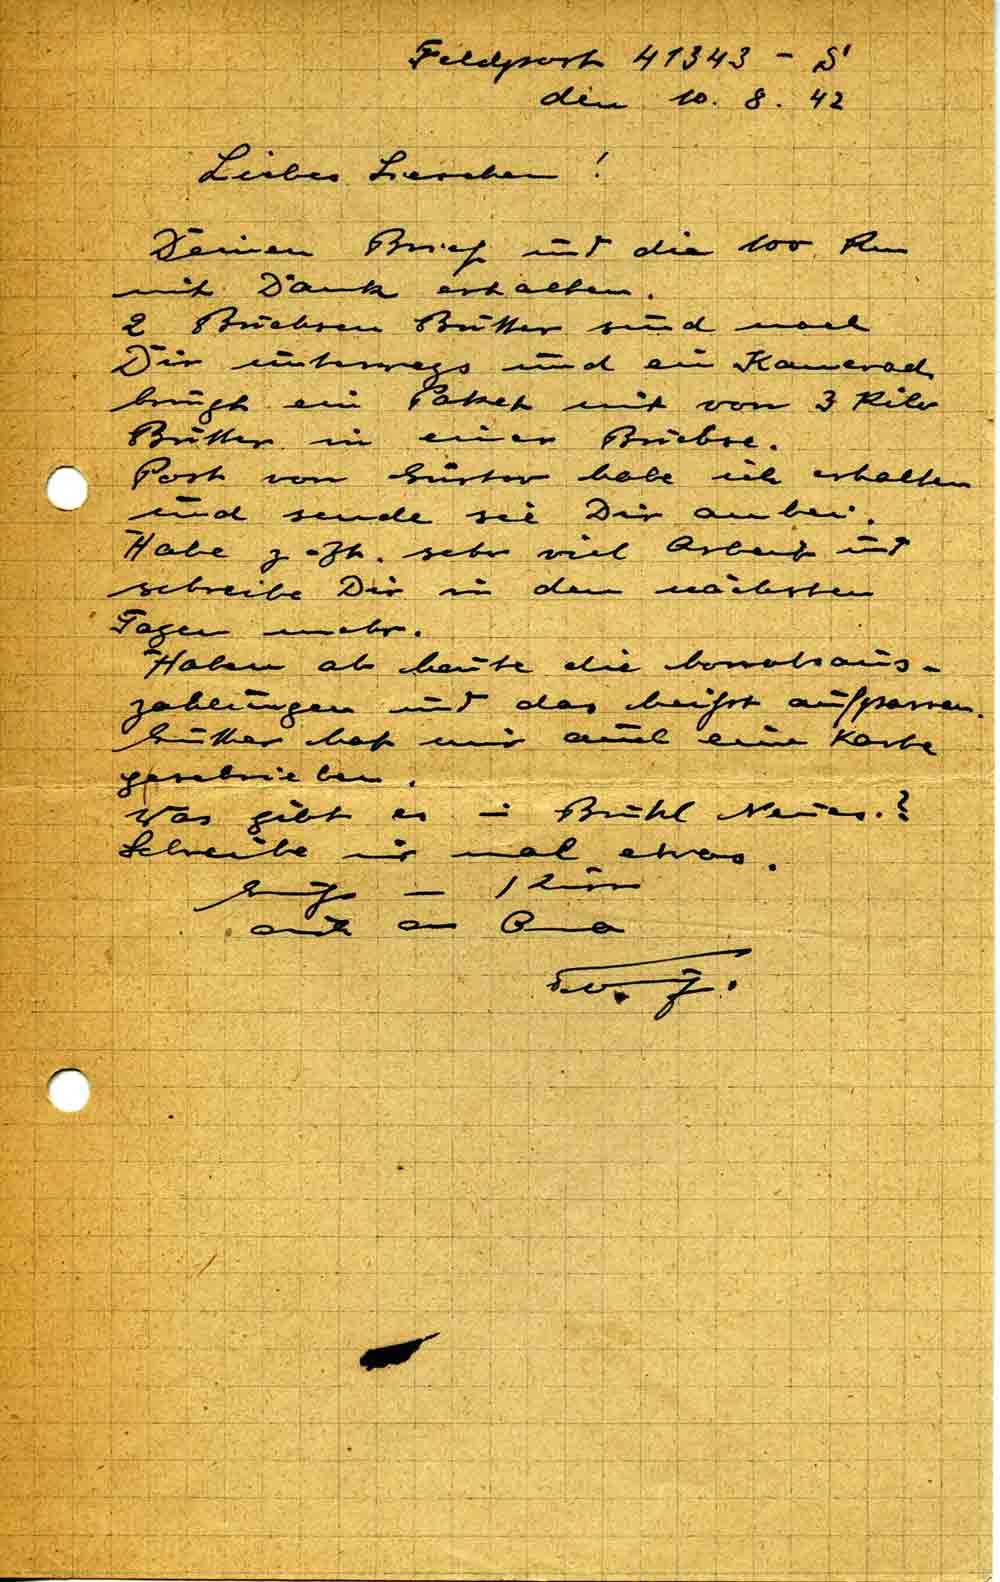 Feldpost 41343 - S
den 10. 8. 42
Liebes Lieschen!
Deinen Brief und die 100 Rm
mit Dank erhalten.
2 Büchsen Butter sind nach
Dir unterwegs und ein Kamerad
bringt ein Paket mit von 3 Kilo
Butter in einer Büchse.
Post von Gustav habe ich erhalten
und sende sie Dir anbei.
Habe z. Zt. sehr viel Arbeit und
schreibe Dir in den nächsten
Tagen mehr.
Haben ab heute die Monatsaus-
zahlungen und das heißt aufpassen.
Günther hat mir auch eine Karte
geschrieben.
Was gibt es in Brühl Neues.?
Schreibe mir mal etwas.
Gruß
auch an Oma